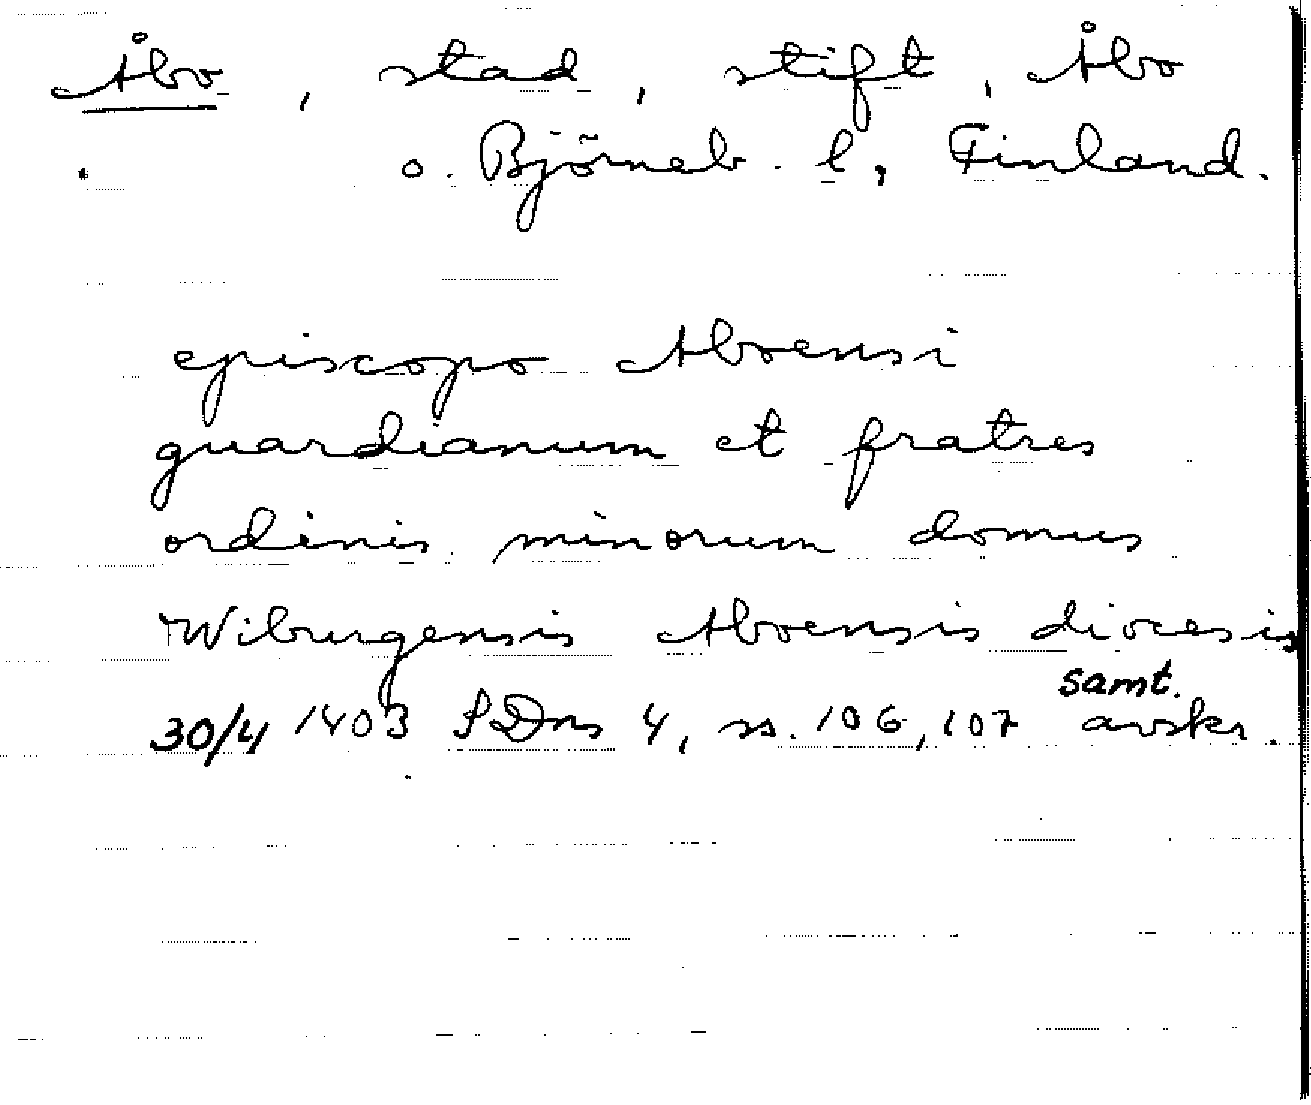 Åbo, stad, stift, Åbo
o. Björneb. l, Finland.
episcopo Aboensi
guardianum et fratres
ordinis minorum domus
Wiburgensis Aboensis diocesis
samt.
30/4 1403 SDns 4, ss. 106, 107 avskr.